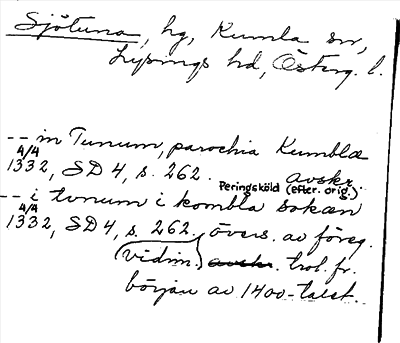 Sjötuna, hg, Kumla sn,
Lysings hd, Österg. l.
-- in Tunum, parochia Kumblæ
4/4
1332, SD 4, s. 262. avskr.
Peringsköld (efter. orig.)
-- i tunum i kombla sokæn
4/4
1332, SD 4, s. 262. övers. av föreg.
(vidim.) avskr. trol. fr.
början av 1400-talet.